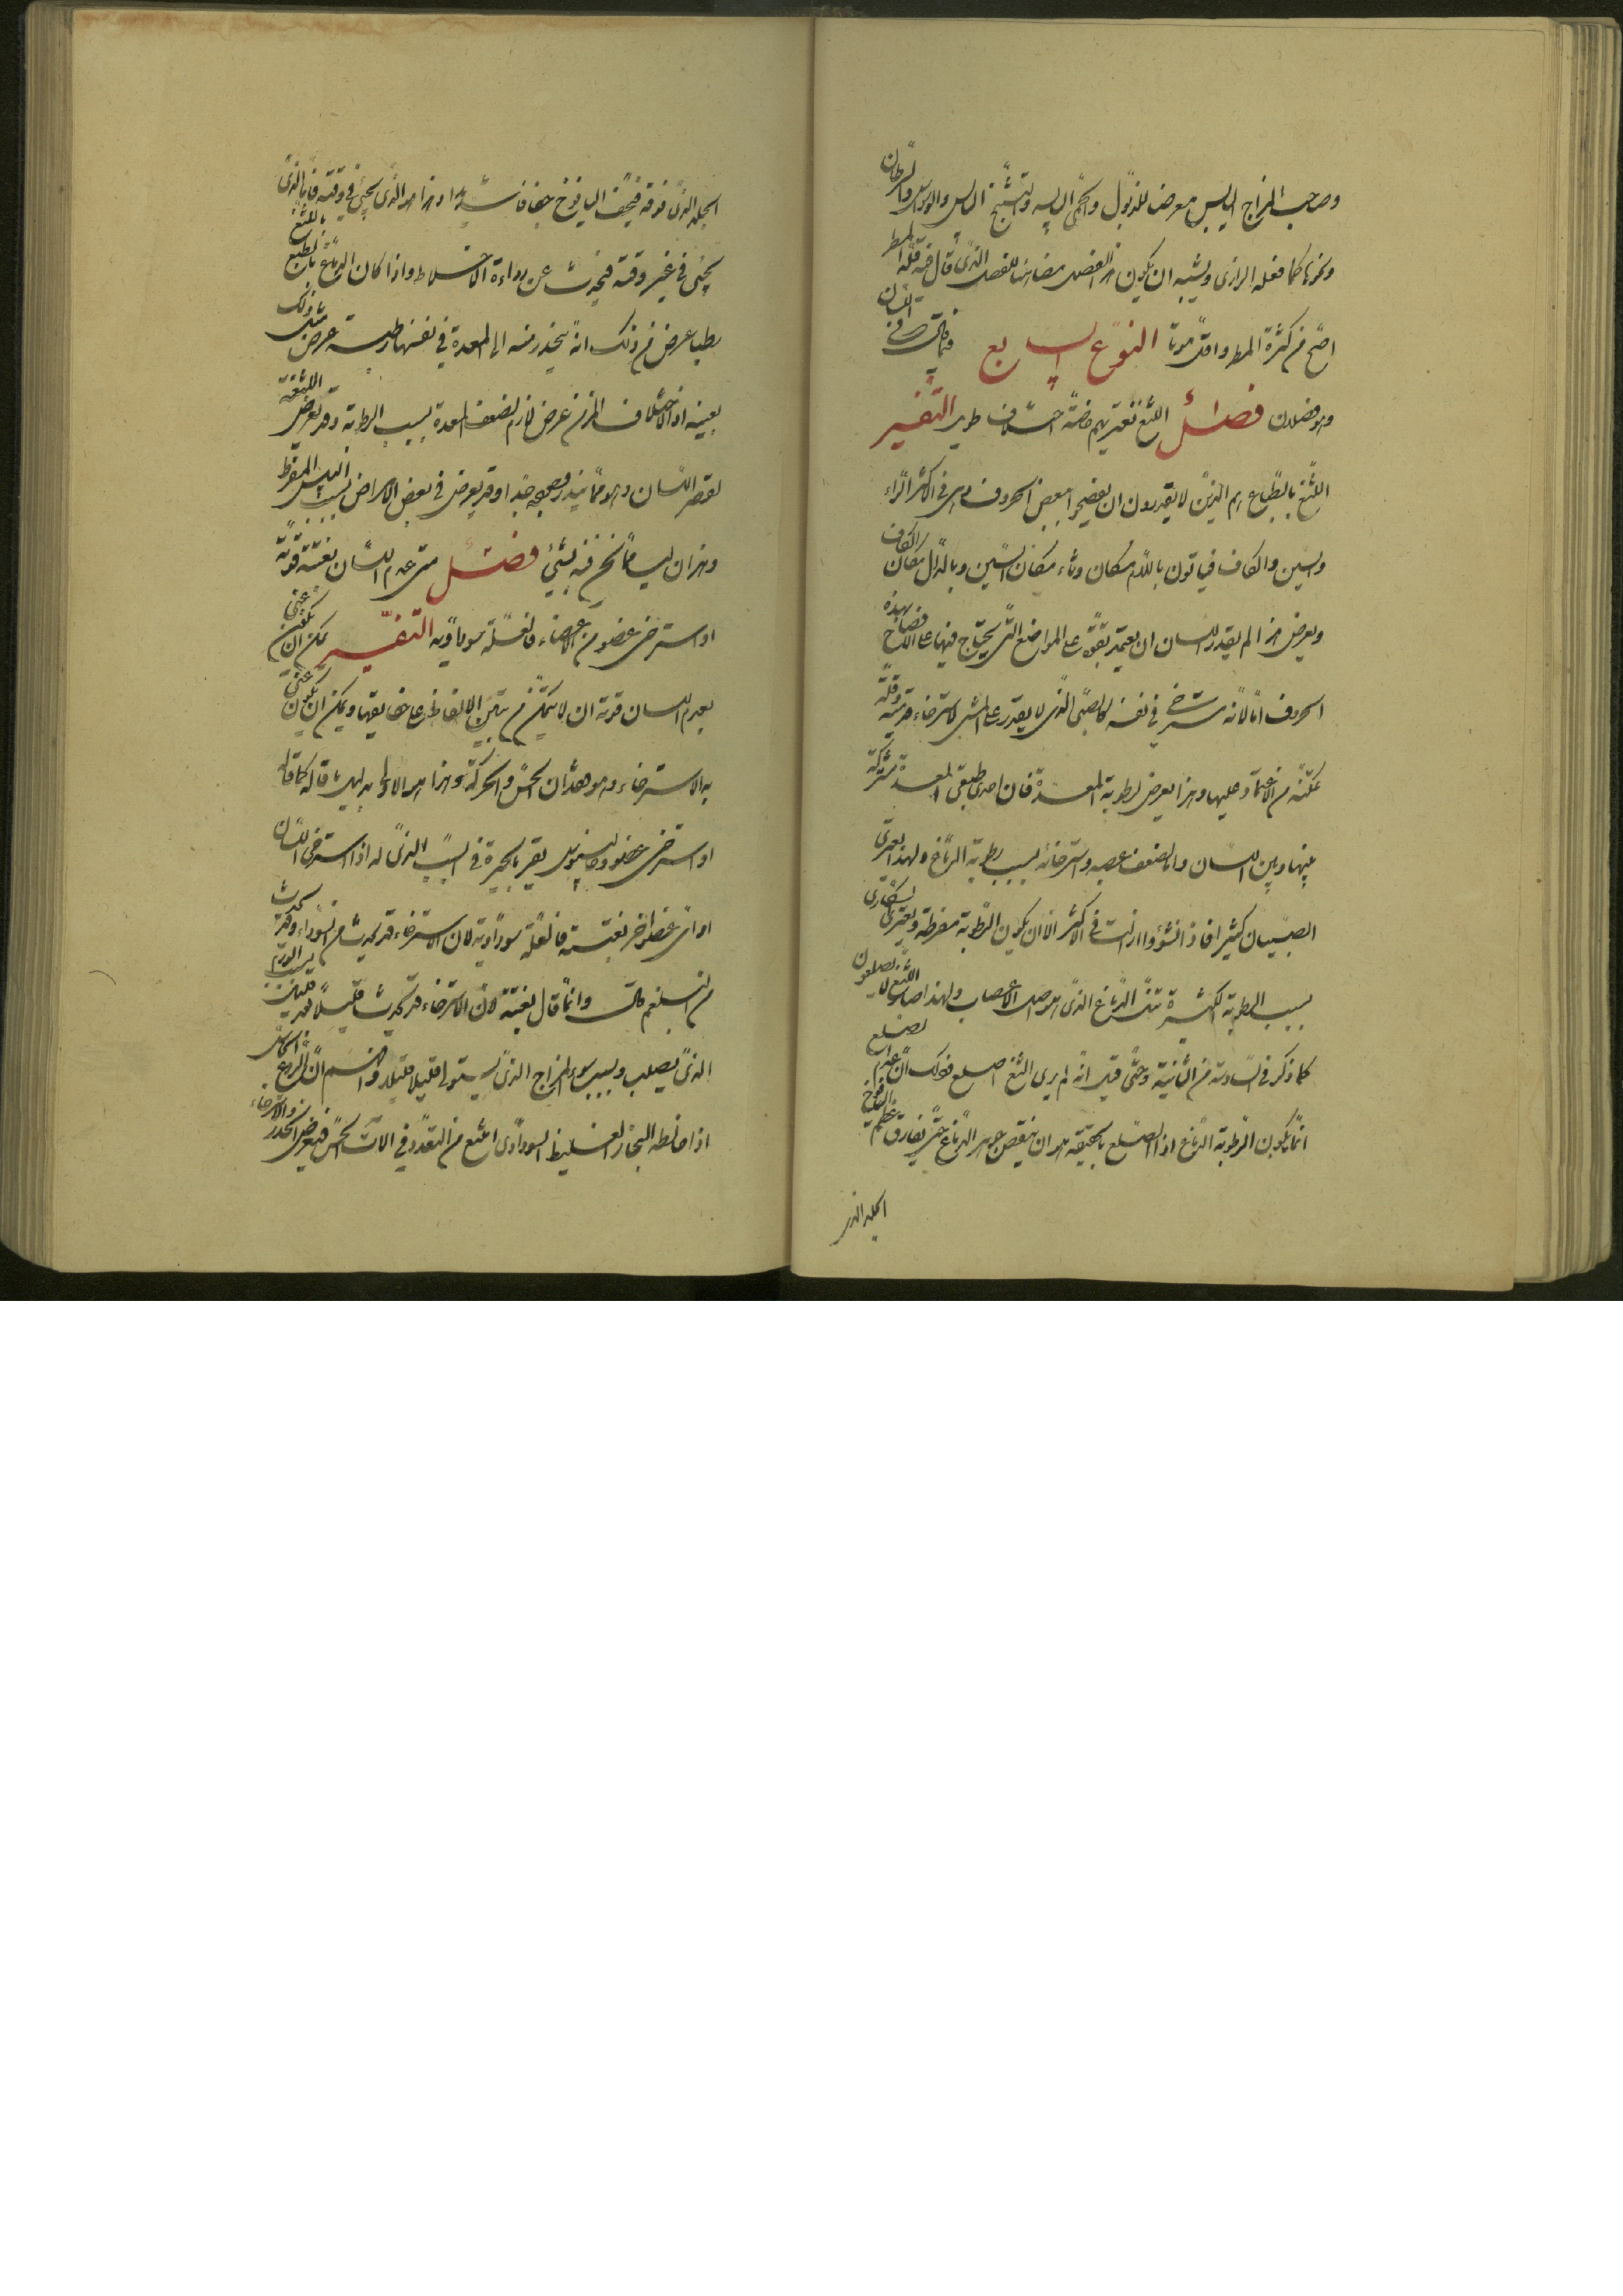 وصاحب المزاج اليابس معرض للذبول والحمى اليابسة والتشنج اليابس والوسواس والسرطان
ونحوها كما فعله الرازى ويشبه ان يكون هذا الفصل مضاف للفصل الذى قال فيه قلة المطر
اصح من كثرة المطر واقل موتا النوع السابع فيما فى اللسان
وهو فصلان فصل اللثغ تعتريهم خاصة اختلاف طويل التفسير
اللثغ بالطباع هم الذين لا يقدرون ان يفصحوا ببعض الحروف وهى فى الاكثر الراء
والسين والكاف فياتون باللام مكان وثاء مكان السين وبالدال مكان الكاف
ويعرض هذا لم يقدر اللسان ان يعتمد بقوة على المواضع التى يحتاج فيها على الافصاح بهذه
الحروف اما لانه مسترخ فى نفسه كالصبى الذى لا يقدر على المشى لاسترخاء قدميه وقلة
تمكنه من الاعتماد عليها وهذا يعرض لرطوبة المعدة فان احدى طبقتى المعدة مشتركة
بينها وبين اللسان واما لضعف عصبه واسترخائه بسبب رطوبة الدماغ ولهذا يعترى
الصبيان كثيرا فاذا نشؤوا زالت فى الاكثر الا ان يكون الرطوبة مفرطة ويعترى السكارى
بسبب الرطوبة الكثيرة الدماغ الذى هو اصل الاعصاب ولهذا صار اللثغ لا يصلعون
كما ذكر فى السادسة من الثانية وحتى قيل انه لم يرى الثغ اصلع فى ذلك ان عدم الصلع
انما يكون لرطوبة الدماغ اذ الصلع بالحقيقة هو ان ينقص جوهر الدماغ حتى يفارق عظم اليافوخ
الجلد الذى
الجلد الذى فوقه فيجف اليافوخ جفافا شديدا وهذا هو الذى يجئ فى وقته فاما الذى
يجئ فى غير وقته فيحدث عن رداءة الاخلاط واذا كان الدماغ باللثغ بالطبع
رطبا عرض من ذلك انه ينحدر منه الى المعدة فى نفسها رطبة عرض مثل ذلك
بعينه اذ الاختلاف المزمن عرض لازم لضعف المعدة بسبب الرطوبة وقد يعرض اللثغة
لقصر اللسان وهو مما يندر وجوده جدا وقد يعرض فى بعض الامراض بسبب اليبس المفرط
وهذان ليسا مما نحن فيه بشئ فصل متى عدم اللسان بغتة قوته
او استرخى عضو من الاعضاء فالعلة سوداوية التفسير يمكن ان يكون عنى
بعدم اللسان قوته ان لا يتمكن من تبيين الالفاظ على حقايقها ويمكن ان يكون عنى
به الاسترخاء وهو فقدان الحس والحركة وهذا هو الاولى بدليل ما قاله كما قال
او استرخى عضو وجالينوس يقر بالحيرة فى السبب الذى له اذا استرخى اللسان
او اى عضو اخر بغتة فالعلة سوداوية لان الاسترخاء قد يحدث من السوداء وقد يحدث
من البلغم قال وانما قال بغتة لان الاسترخاء قد يحدث قليلا قليلا بسبب الورم
الذى يصلب وبسبب سوء المزاج الذى يستولى قليلا قليلا واقسم ان الروع النفسانى
اذا خالطه البخار الغليظ السوداوى امتنع من النفوذ فى الات الحس فيعرض الخدر والاسترخاء